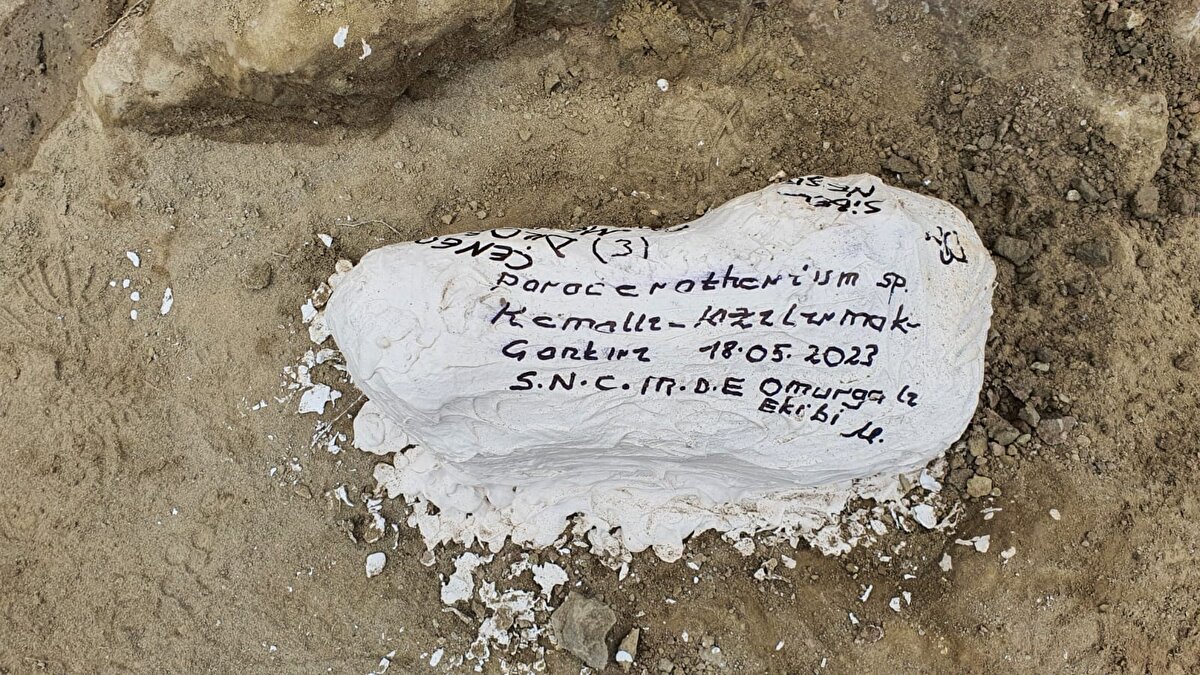 SiBEL
NES
CENG
(3)
Paraceratherium sp.
Kemallı-Kızılırmak
Çankırı 18.05.2023
S.N.C.M.D.E Omurgalı
Ekibi